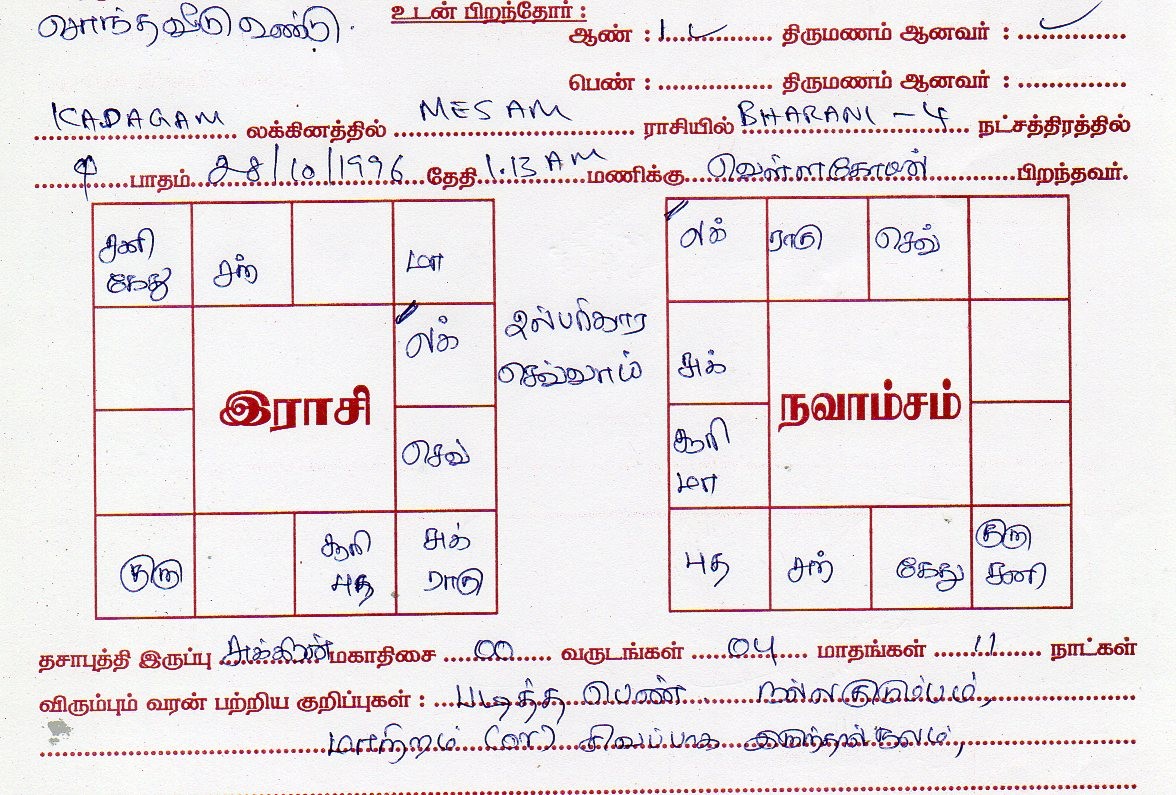 சொந்த வீடு உண்டு.
உடன் பிறந்தோர் :
ஆண் : 1 திருமணம் ஆனவர் :
பெண் : திருமணம் ஆனவர் :
KADAGAM லக்கினத்தில் MESAM ராசியில் BHARANI - 4 நட்சத்திரத்தில்
பாதம் 28/10/1996 தேதி 1.13 AM மணிக்கு பிறந்தவர்.
சனி சந் மா
கேது
லக்
இராசி
செவ்
குரு சூரி சுக்
புத ராகு
பரிகார
செவ்வாய்
லக் ராகு செவ்
சுக்
நவாம்சம்
சூரி
மா
புத சந் கேது குரு
சனி
தசாபுத்தி இருப்பு சுக்கிரன் மகாதிசை 00 வருடங்கள் 04 மாதங்கள் 11 நாட்கள்
விரும்பும் வரன் பற்றிய குறிப்புகள் : படித்த பெண் நல்ல குடும்பம்,
மாநிறம் (or) சிவப்பாக இருந்தால் நலம்,